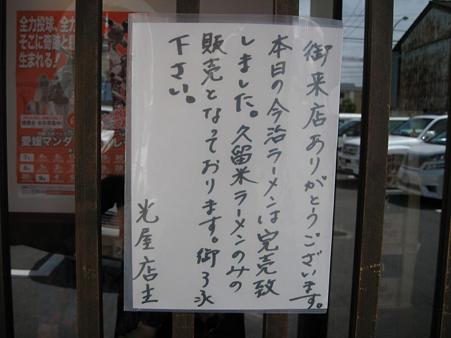 御来店ありがとうございます。
本日の今治ラーメンは完売致
しました。久留米ラーメンのみの
販売となっております。御了承
下さい。
光屋店主
全力投球、全力
そこに奇跡と
生まれる!
愛媛マンダ